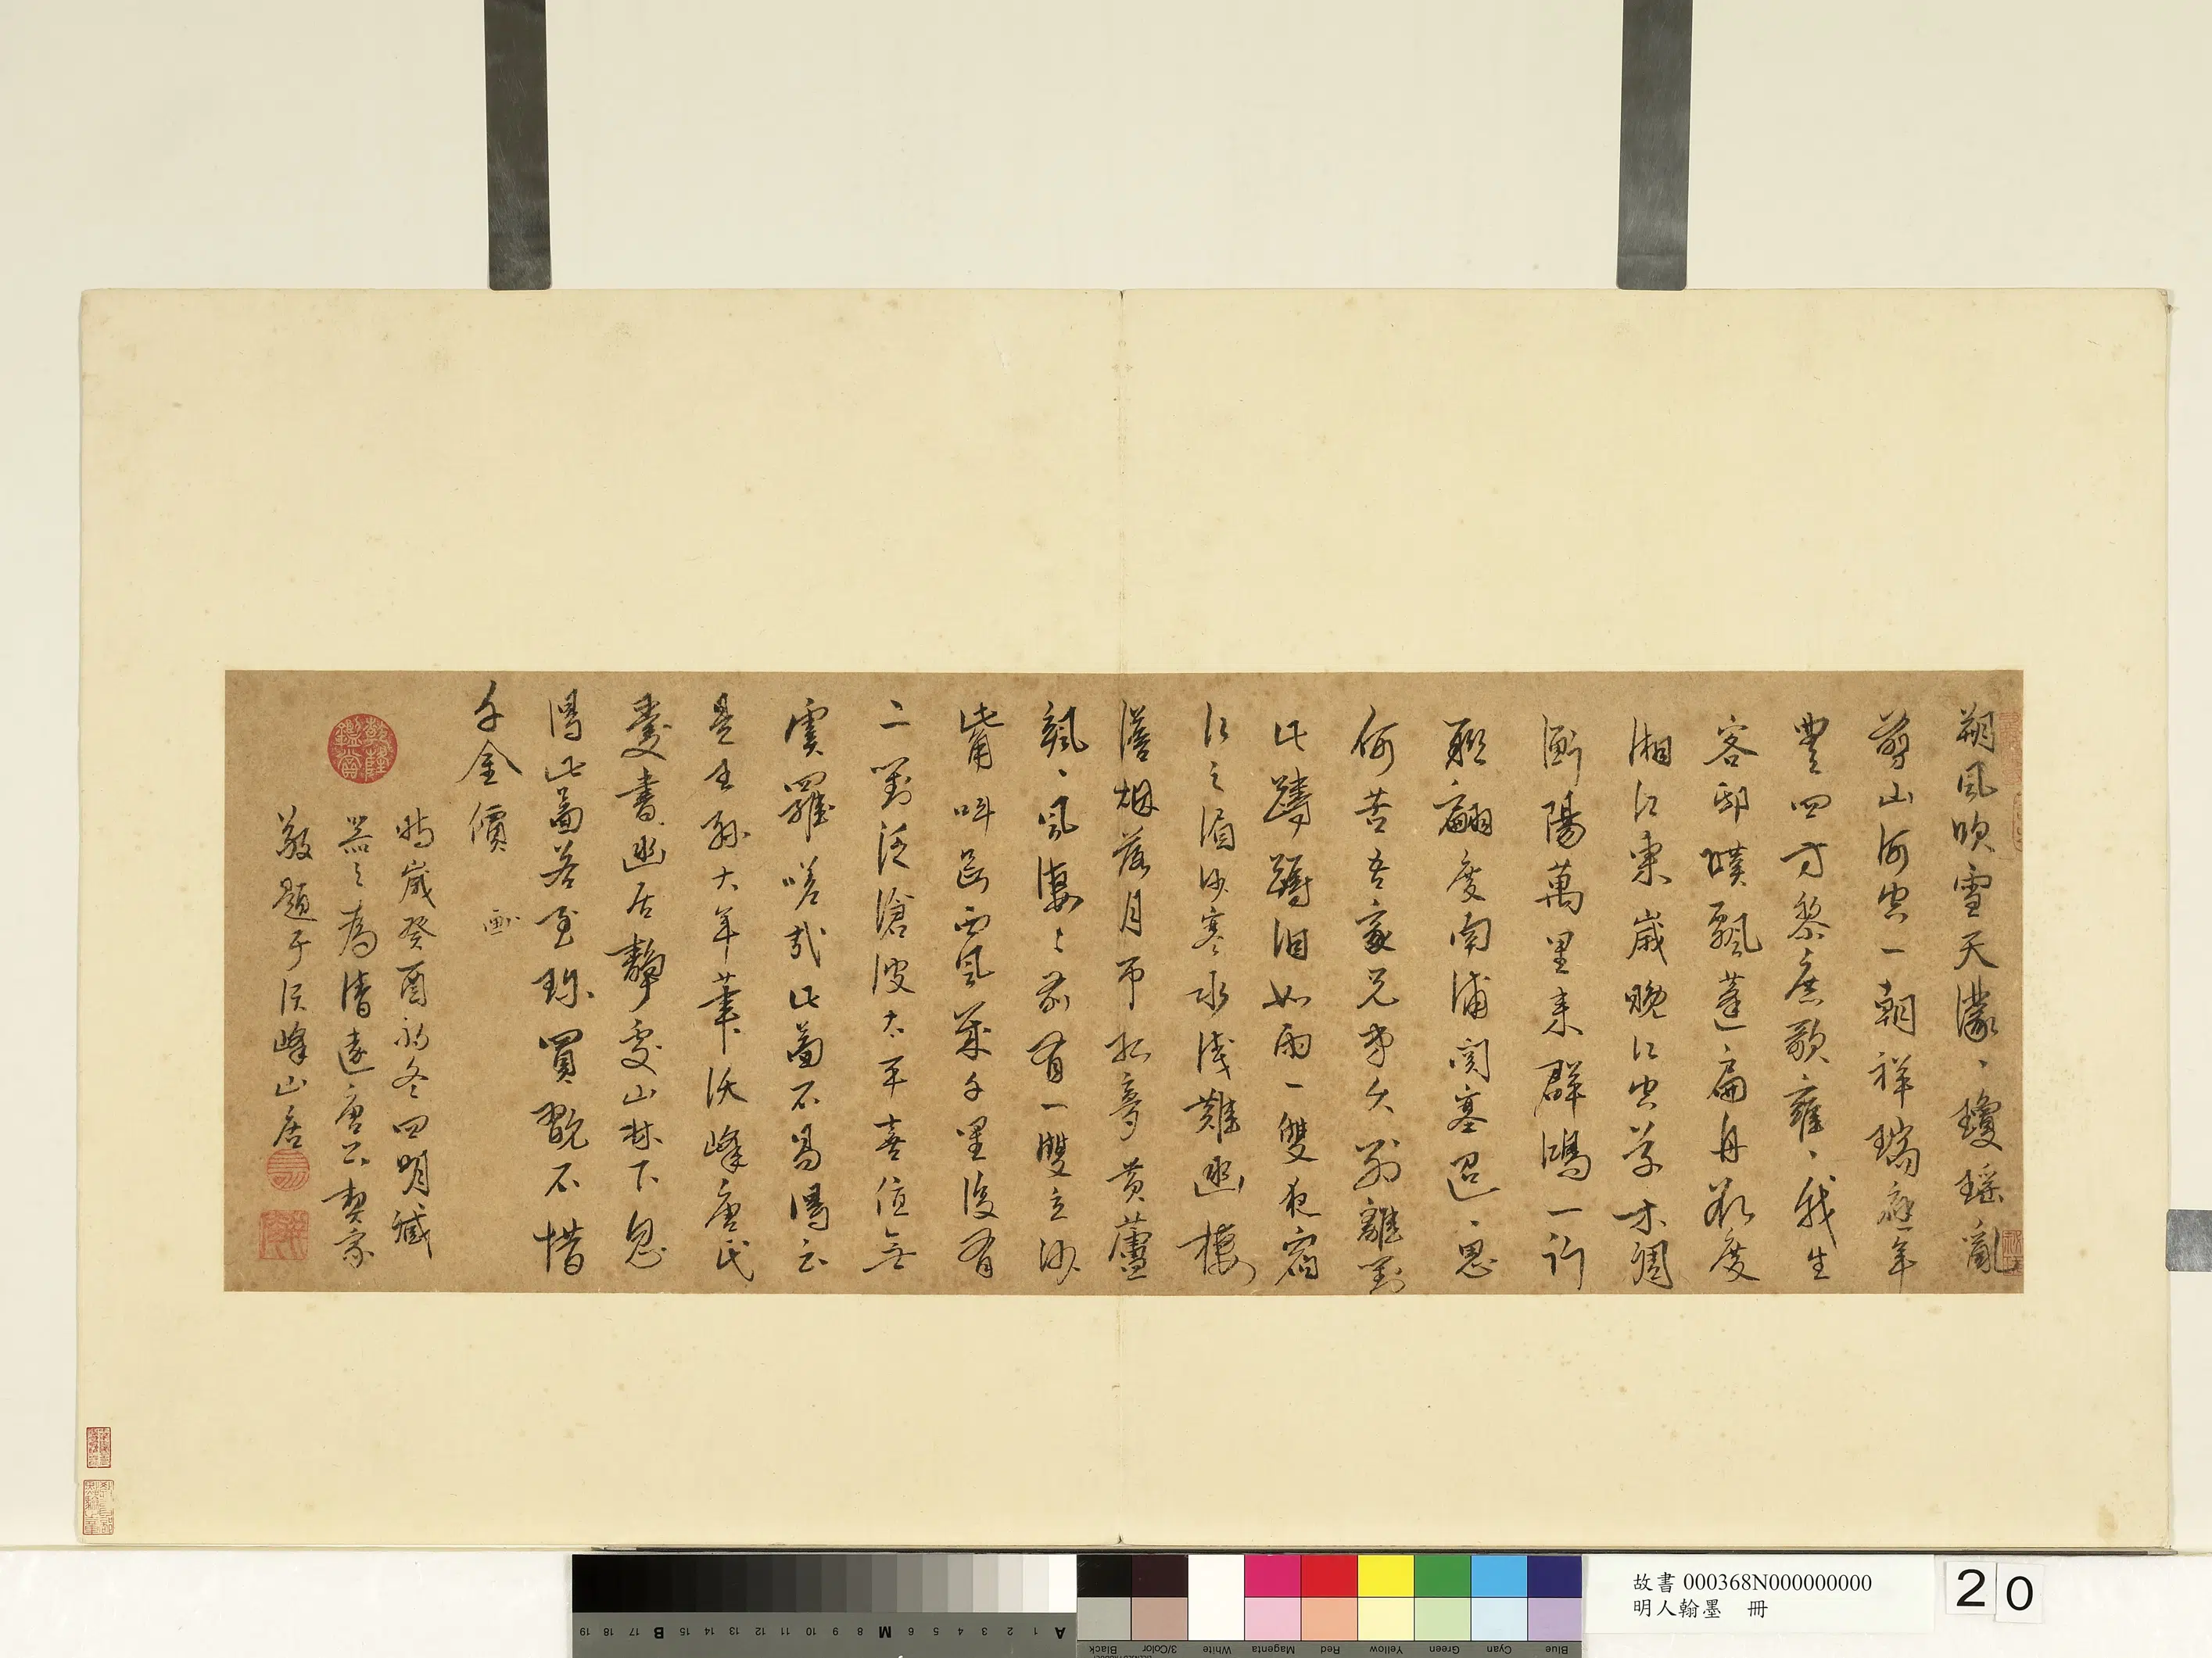 朔風吹雪天濛、瓊瑤亂
剪山河出一朝祥瑞應年
豐四方黎庶歌雍、我生
客邸嘆飄蓬扁舟幾度
湘江東歲晚江空草木凋
衡陽萬里來群鴻一行
聯翩度南浦関塞迢、思
何苦吾家兄弟久別離對
此躊躇泪如雨一雙夜宿
江之湄沙寒水淺難幽棲
澹烟落月帶孤夢黃蘆
颯、風凄、前有一雙立沙
觜叫斷西風幾千里後有
二對泛滄波太平喜值無
虞羅嗟哉此畫不易得云
是王孫大年筆沃峰唐氏
愛書幽居靜處山林下忽
得此畫若至珍買翫不惜
千金價
画
時歲癸酉初冬四明臧
器之為清遠唐公契家
敬題于沃峰山居
乾隆鑑賞
故書 000368N000000000
明人翰墨 冊
20
A 1 2 3 4 5 6 M 8 9 10 11 12 13 14 15 B 17 18 19
Black 3/Color White Magenta Red Yellow Green Cyan Blue